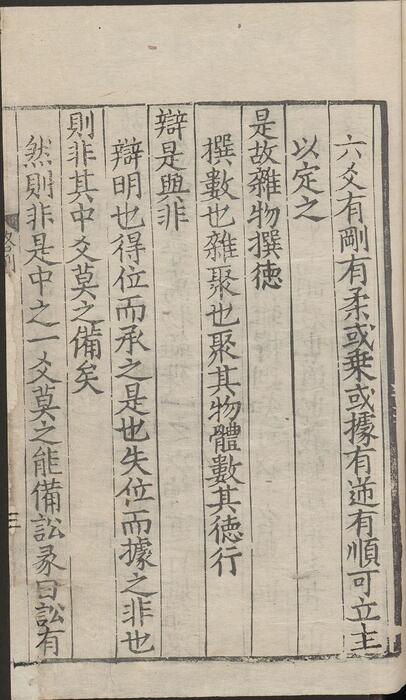 六爻有剛有柔或乗或據有逆有順可立主
以定之
是故雜物撰徳
撰數也雜聚也聚其物體數其徳行
辯是與非
辯明也得位而承之是也失位而據之非也
則非其中爻莫之備矣
然則非是中之一爻莫之能備訟彖曰訟有